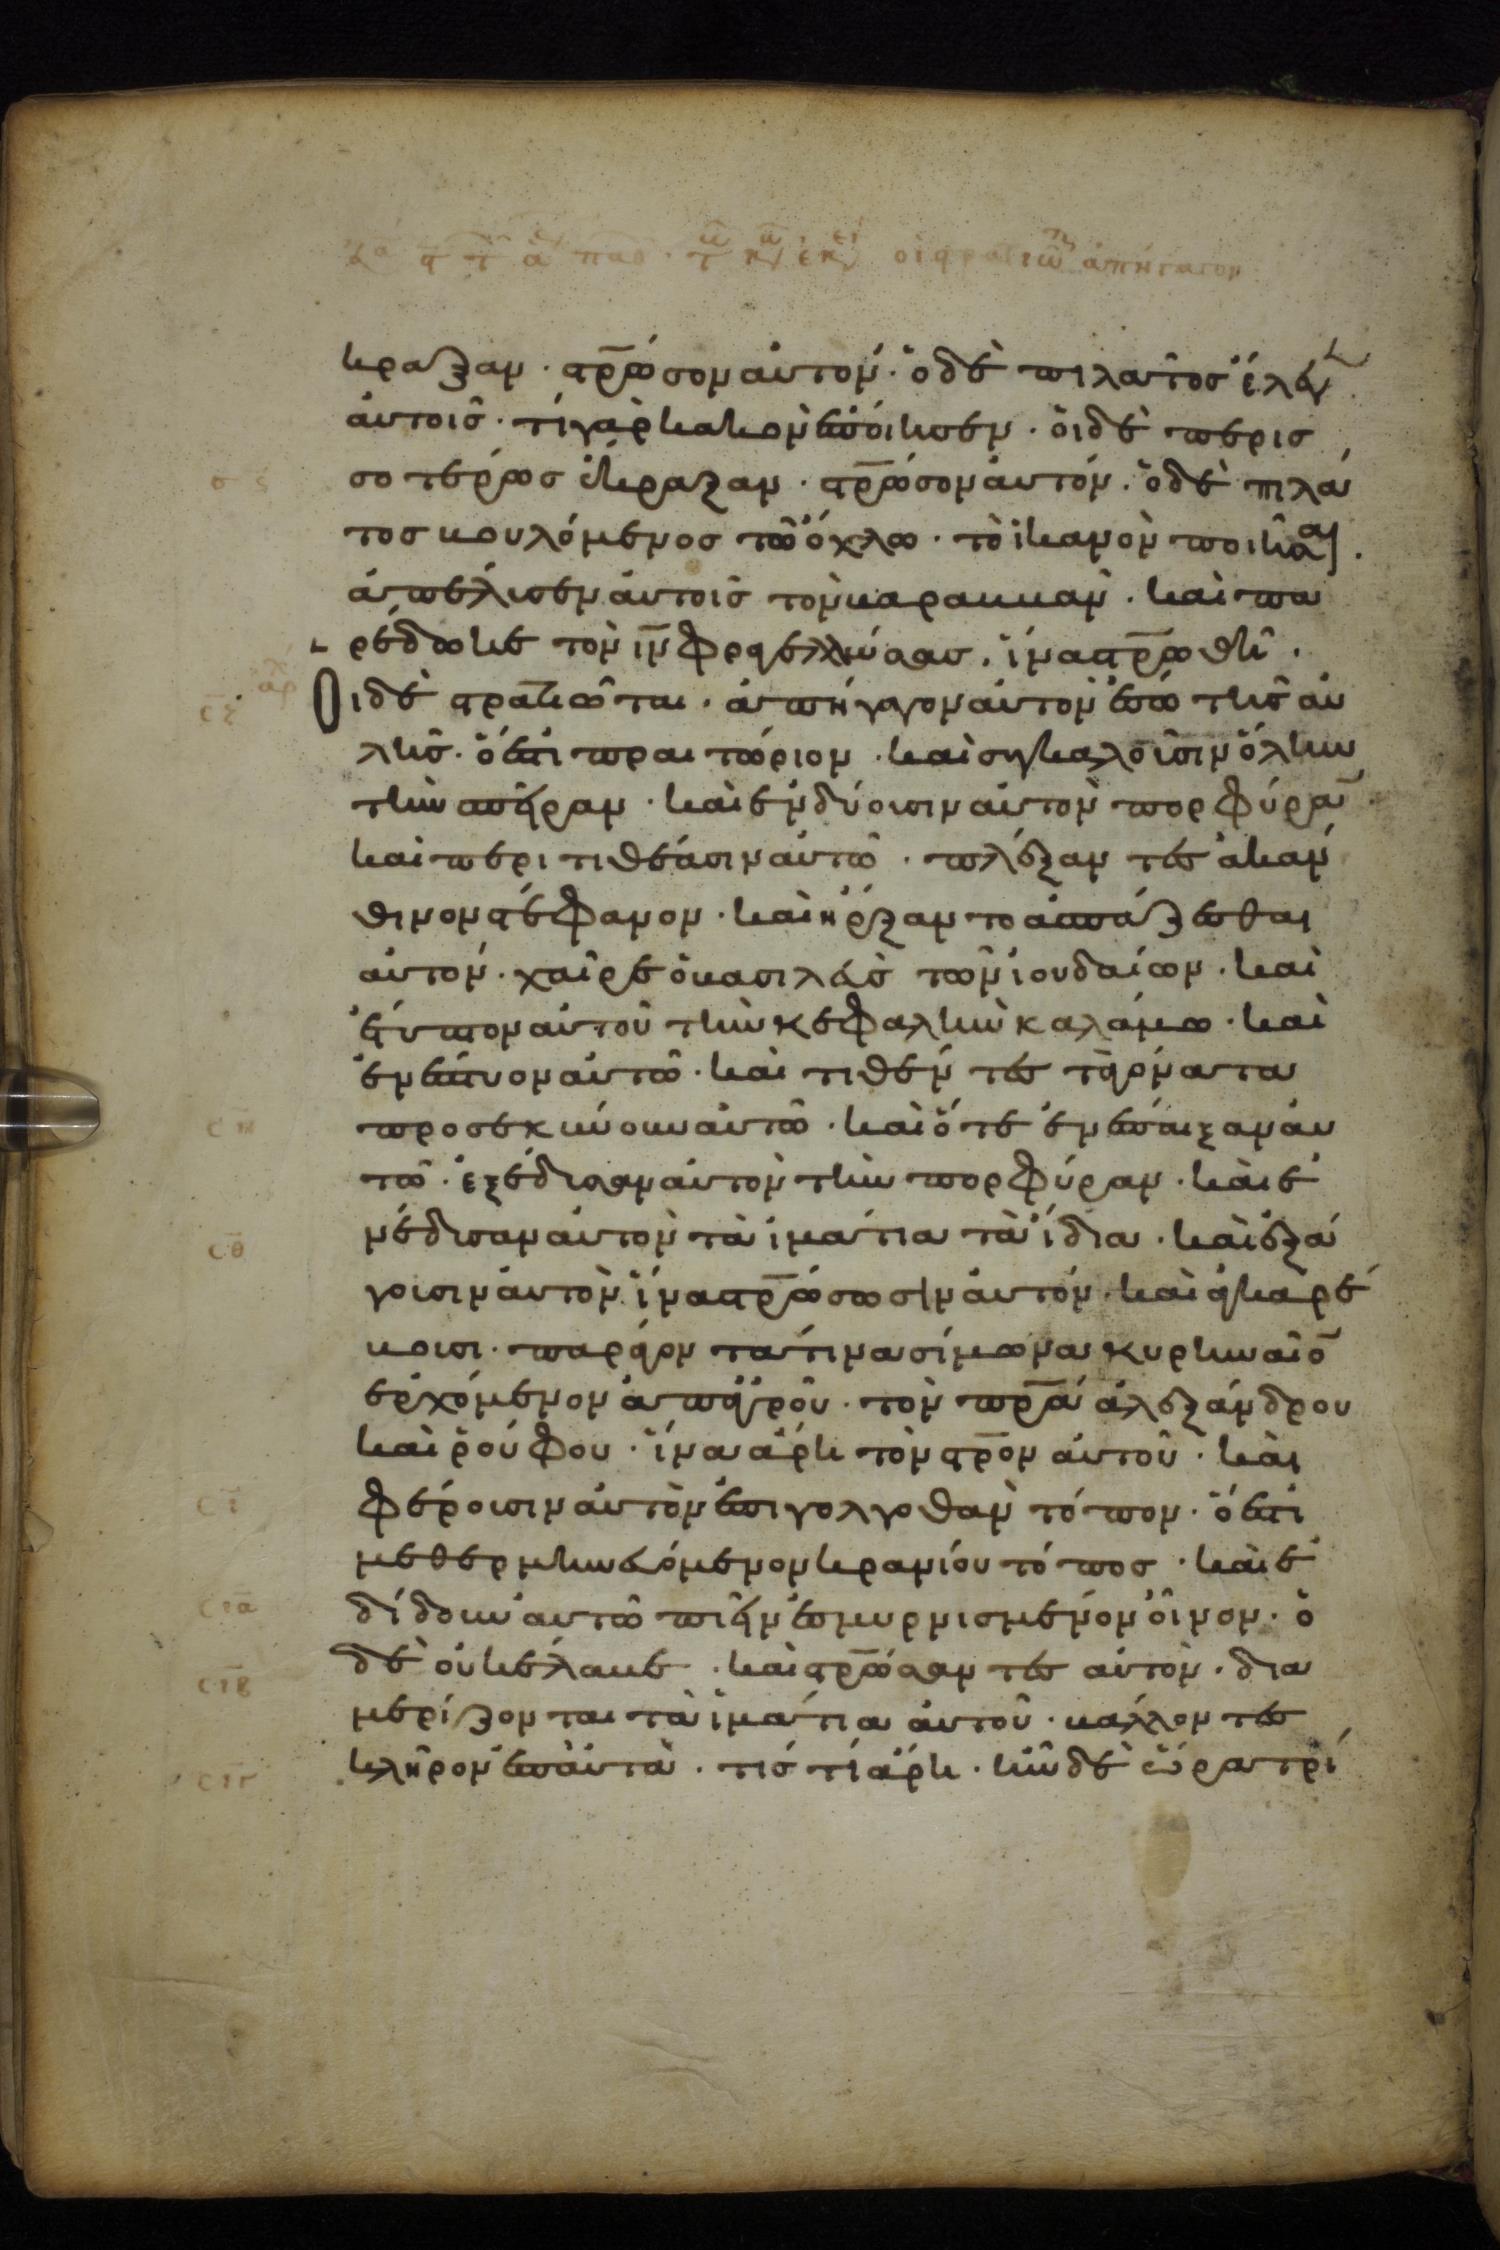 κραζαν · στρ̅ωσον αὐτόν · ὁ δὲ πιλάτος ἔλεγ
αὐτοῖς · τί γὰρ κακὸν ἐποίησεν · οἱ δὲ περισ
σοτέρως ἔκραξαν · στρ̅ωσον αὐτόν · ὁ δὲ πιλά
τος βουλόμενος τῶ ὄχλω · τὸ ἱκανὸν ποιῆσαι ·
ἀπέλυσεν αὐτοῖς τὸν βαραββᾶν · καὶ πα
ρέδωκε τὸν ι̅ν̅ φραγελλώσας · ἵνα στρ̅ωθῆ ·
Οἱ δὲ στρατιῶται · ἀπήγαγον αὐτὸν ἔσω τῆς αὐ
λῆς · ὅ ἐστι πραιτώριον · καὶ συγκαλοῦσιν ὅλην
τὴν σπεῖραν · καὶ ἐνδύουσιν αὐτὸν πορφύρα̅
καὶ περιτιθέασιν αὐτῶ · πλέξαντες ἀκάν
θινον στέφανον · καὶ ἤρξαντο ἀσπάζεσθαι
αὐτόν · χαῖρε ὁ βασιλεὺς τῶν ἰουδαίων · καὶ
ἔτυπτον αὐτοῦ τὴν κεφαλὴν καλάμω · καὶ
ἐνέπτυον αὐτῶ · καὶ τιθέντες τὰ γόνατα
προσεκύνουν αὐτῶ · καὶ ὅτε ἐνέπαιξαν αὐ
τῶ · ἐξέδυσαν αὐτὸν τὴν πορφύραν · καὶ ἐ
νέδυσαν αὐτὸν τὰ ἱμάτια τὰ ἴδια · καὶ ἐξά
γουσιν αὐτὸν ἵνα στρ̅ωσωσιν αὐτόν · καὶ ἀγγαρεύ
ουσι · παράγοντά τινα σίμωνα κυρηναῖο̅
ἐρχόμενον ἀπ' ἀγροῦ · τὸν πρ̅α ἀλεξάνδρου
καὶ ῥούφου · ἵνα ἄρη τὸν στρ̅ον αὐτοῦ · καὶ
φέρουσιν αὐτὸν ἐπὶ γολγοθᾶν τόπον · ὅ ἐστι
μεθερμηνευόμενον κρανίου τόπος · καὶ ἐ
δίδουν αὐτῶ πιεῖν ἐσμυρνισμένον οἶνον · ὁ
δὲ οὐκ ἔλαβε · καὶ στρ̅ώσαντες αὐτόν · δια
μερίζονται τὰ ἱμάτια αὐτοῦ · βάλλοντες
κλῆρον ἐπ' αὐτά · τίς τί ἄρη · ἦν δὲ ὥρα τρί